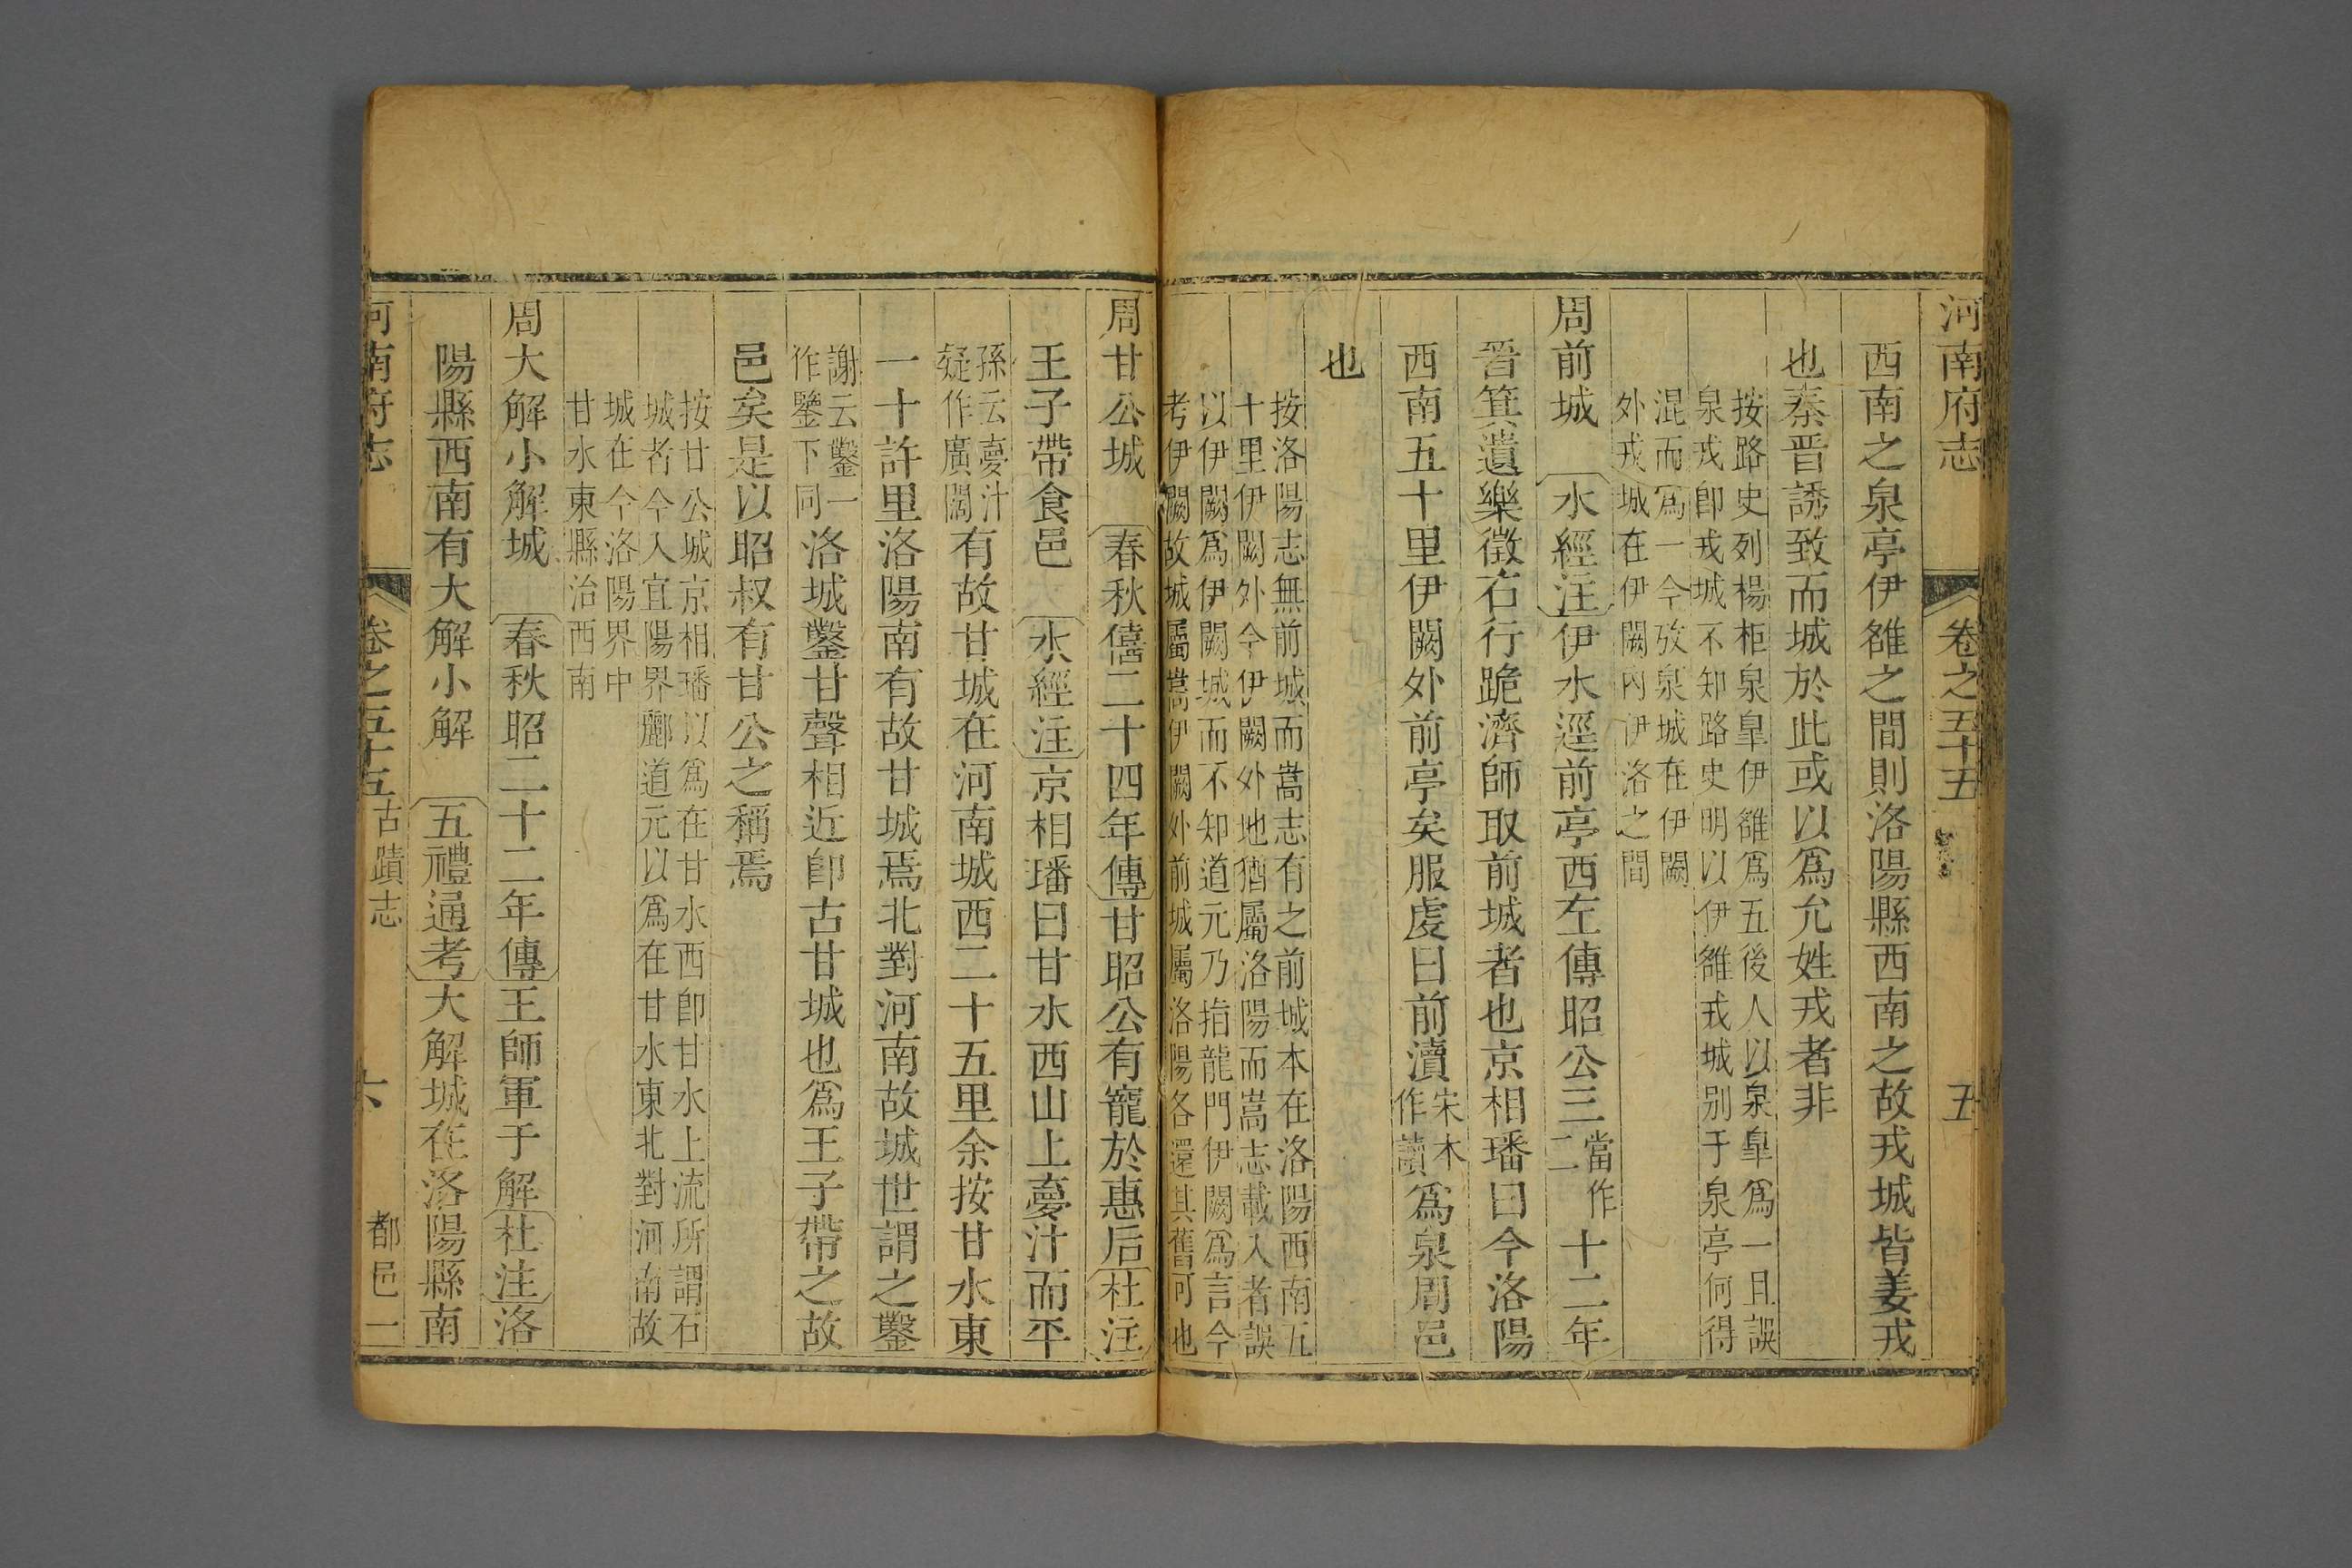 河南府志
卷之五十五
五
西南之泉亭伊雒之間則洛陽縣西南之故戎城皆姜戎
也秦晉誘致而城於此或以爲允姓戎者非
按路史列楊柜泉臯伊雒爲五後人以泉臯爲一且誤
泉戎卽戎城不知路史明以伊雒戎城别于泉亭何得
混而爲一今攷泉城在伊闕
外戎城在伊闕內伊洛之間
周前城 水經注伊水逕前亭西左傳昭公三當作二十二年
晉箕遺樂徵右行跪濟師取前城者也京相璠曰今洛陽
西南五十里伊闕外前亭矣服虔曰前瀆宋本作讀爲泉周邑
也
按洛陽志無前城而嵩志有之前城本在洛陽西南五
十里伊闕外今伊闕外地猶屬洛陽而嵩志載入者誤
以伊闕爲伊闕城而不知道元乃指龍門伊闕爲言今
考伊闕故城屬嵩伊闕外前城屬洛陽各還其舊可也
周甘公城 春秋僖二十四年傳甘昭公有寵於惠后杜注
王子帶食邑 水經注京相璠曰甘水西山上夔汁而平
孫云夔汁疑作廣闊有故甘城在河南城西二十五里余按甘水東
一十許里洛陽南有故甘城焉北對河南故城世謂之鑿
謝云鑿一作鑒下同洛城鑿甘聲相近卽古甘城也爲王子帶之故
邑矣是以昭叔有甘公之稱焉
按甘公城京相璠以爲在甘水西卽甘水上流所謂石
城者今入宜陽界酈道元以爲在甘水東北對河南故
城在今洛陽界中
甘水東縣治西南
周大解小解城 春秋昭二十二年傳王師軍于解杜注洛
陽縣西南有大解小解 五禮通考大解城在洛陽縣南
河南府志
卷之五十五
古蹟志
六
都邑一